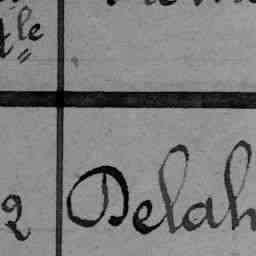 le
2 Delah